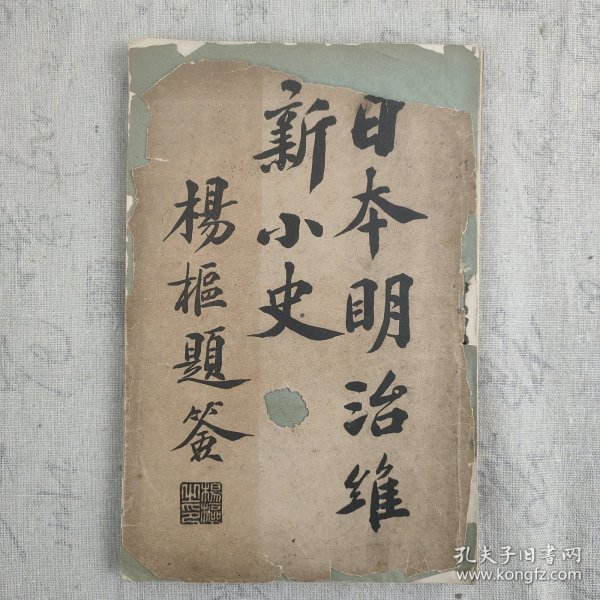 日本明治維
新小史
楊樞題簽
楊樞之印
孔夫子旧书网
www.kongfz.com